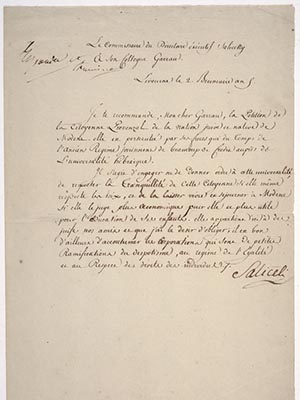 Le Commissaire du Directoire exécutif Salicetty
A Son Collegue Garrau
Livourne le 2 Brumaire an 5
Je te recommande, Mon cher Garrau, la Pétition de
la Citoyenne Lorenzel de la nation juive, native de
Modene. elle est persécutée par des juifs qui du temps de
l'ancien Régime jouissaient de beaucoup de crédit auprès de
l'universalité hébraïque.
Il s'agit d'engager ou de donner ordre à cette universalité
de respecter la tranquillité de cette Citoyenne si elle même
respecte les loix, et de la laisser vivre et séjourner à Modene
si elle le juge plus économique pour elle et plus utile
pour l'éducation de ses enfants. elle appartient à des
juifs nos amis et que j'ai le desir d'obliger. il est bon
d'ailleurs d'accoutumer les Corporations qui sont de petites
Ramifications du despotisme, au regime de l'Egalité
et au Respect des droits des individus.
Saliceti